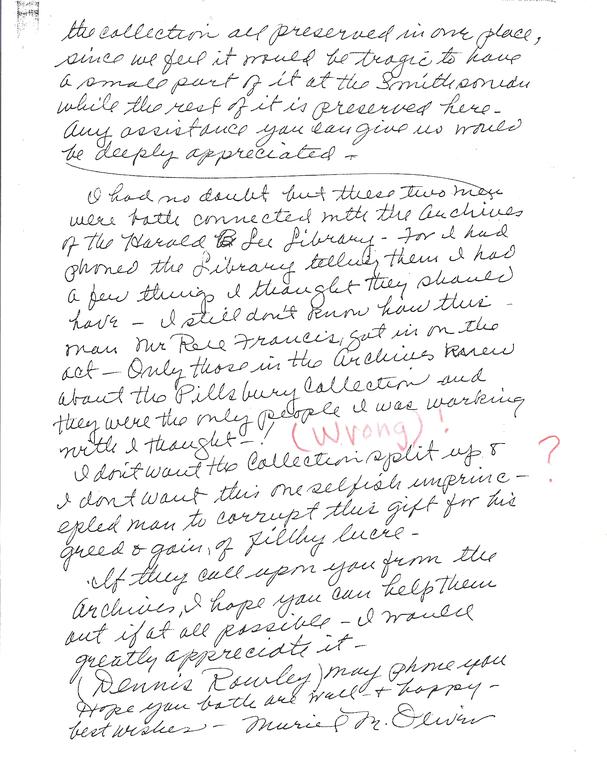 the collection all preserved in one place,
since we feel it would be tragic to have
a small part of it at the Smithsonean
while the rest of it is preserved here-
Any assistance you can give us would
be deeply appreciated -
I had no doubt but these two men
were both connected with the Archives
of the Harold B Lee Library - For I had
phoned the Library telling them I had
a few things I thought they should
have - I still don't know how this -
man Mr Rell Francis, got in on the
act - Only those in the Archives knew
about the Pillsbury Collection and
they were the only people I was working
with I thought - ! (Wrong)!
I don't want the Collection split up &
?
I dont want this one selfish unprinc-
epled man to corrupt this gift for his
greed & gain, of filthy lucre -
If they call upon you from the
Archives, I hope you can help them
out if at all possible - I would
greatly appreciate it -
(Dennis Rowley) may phone you
Hope you both are well + happy -
best wishes - Muriel M. Oliver